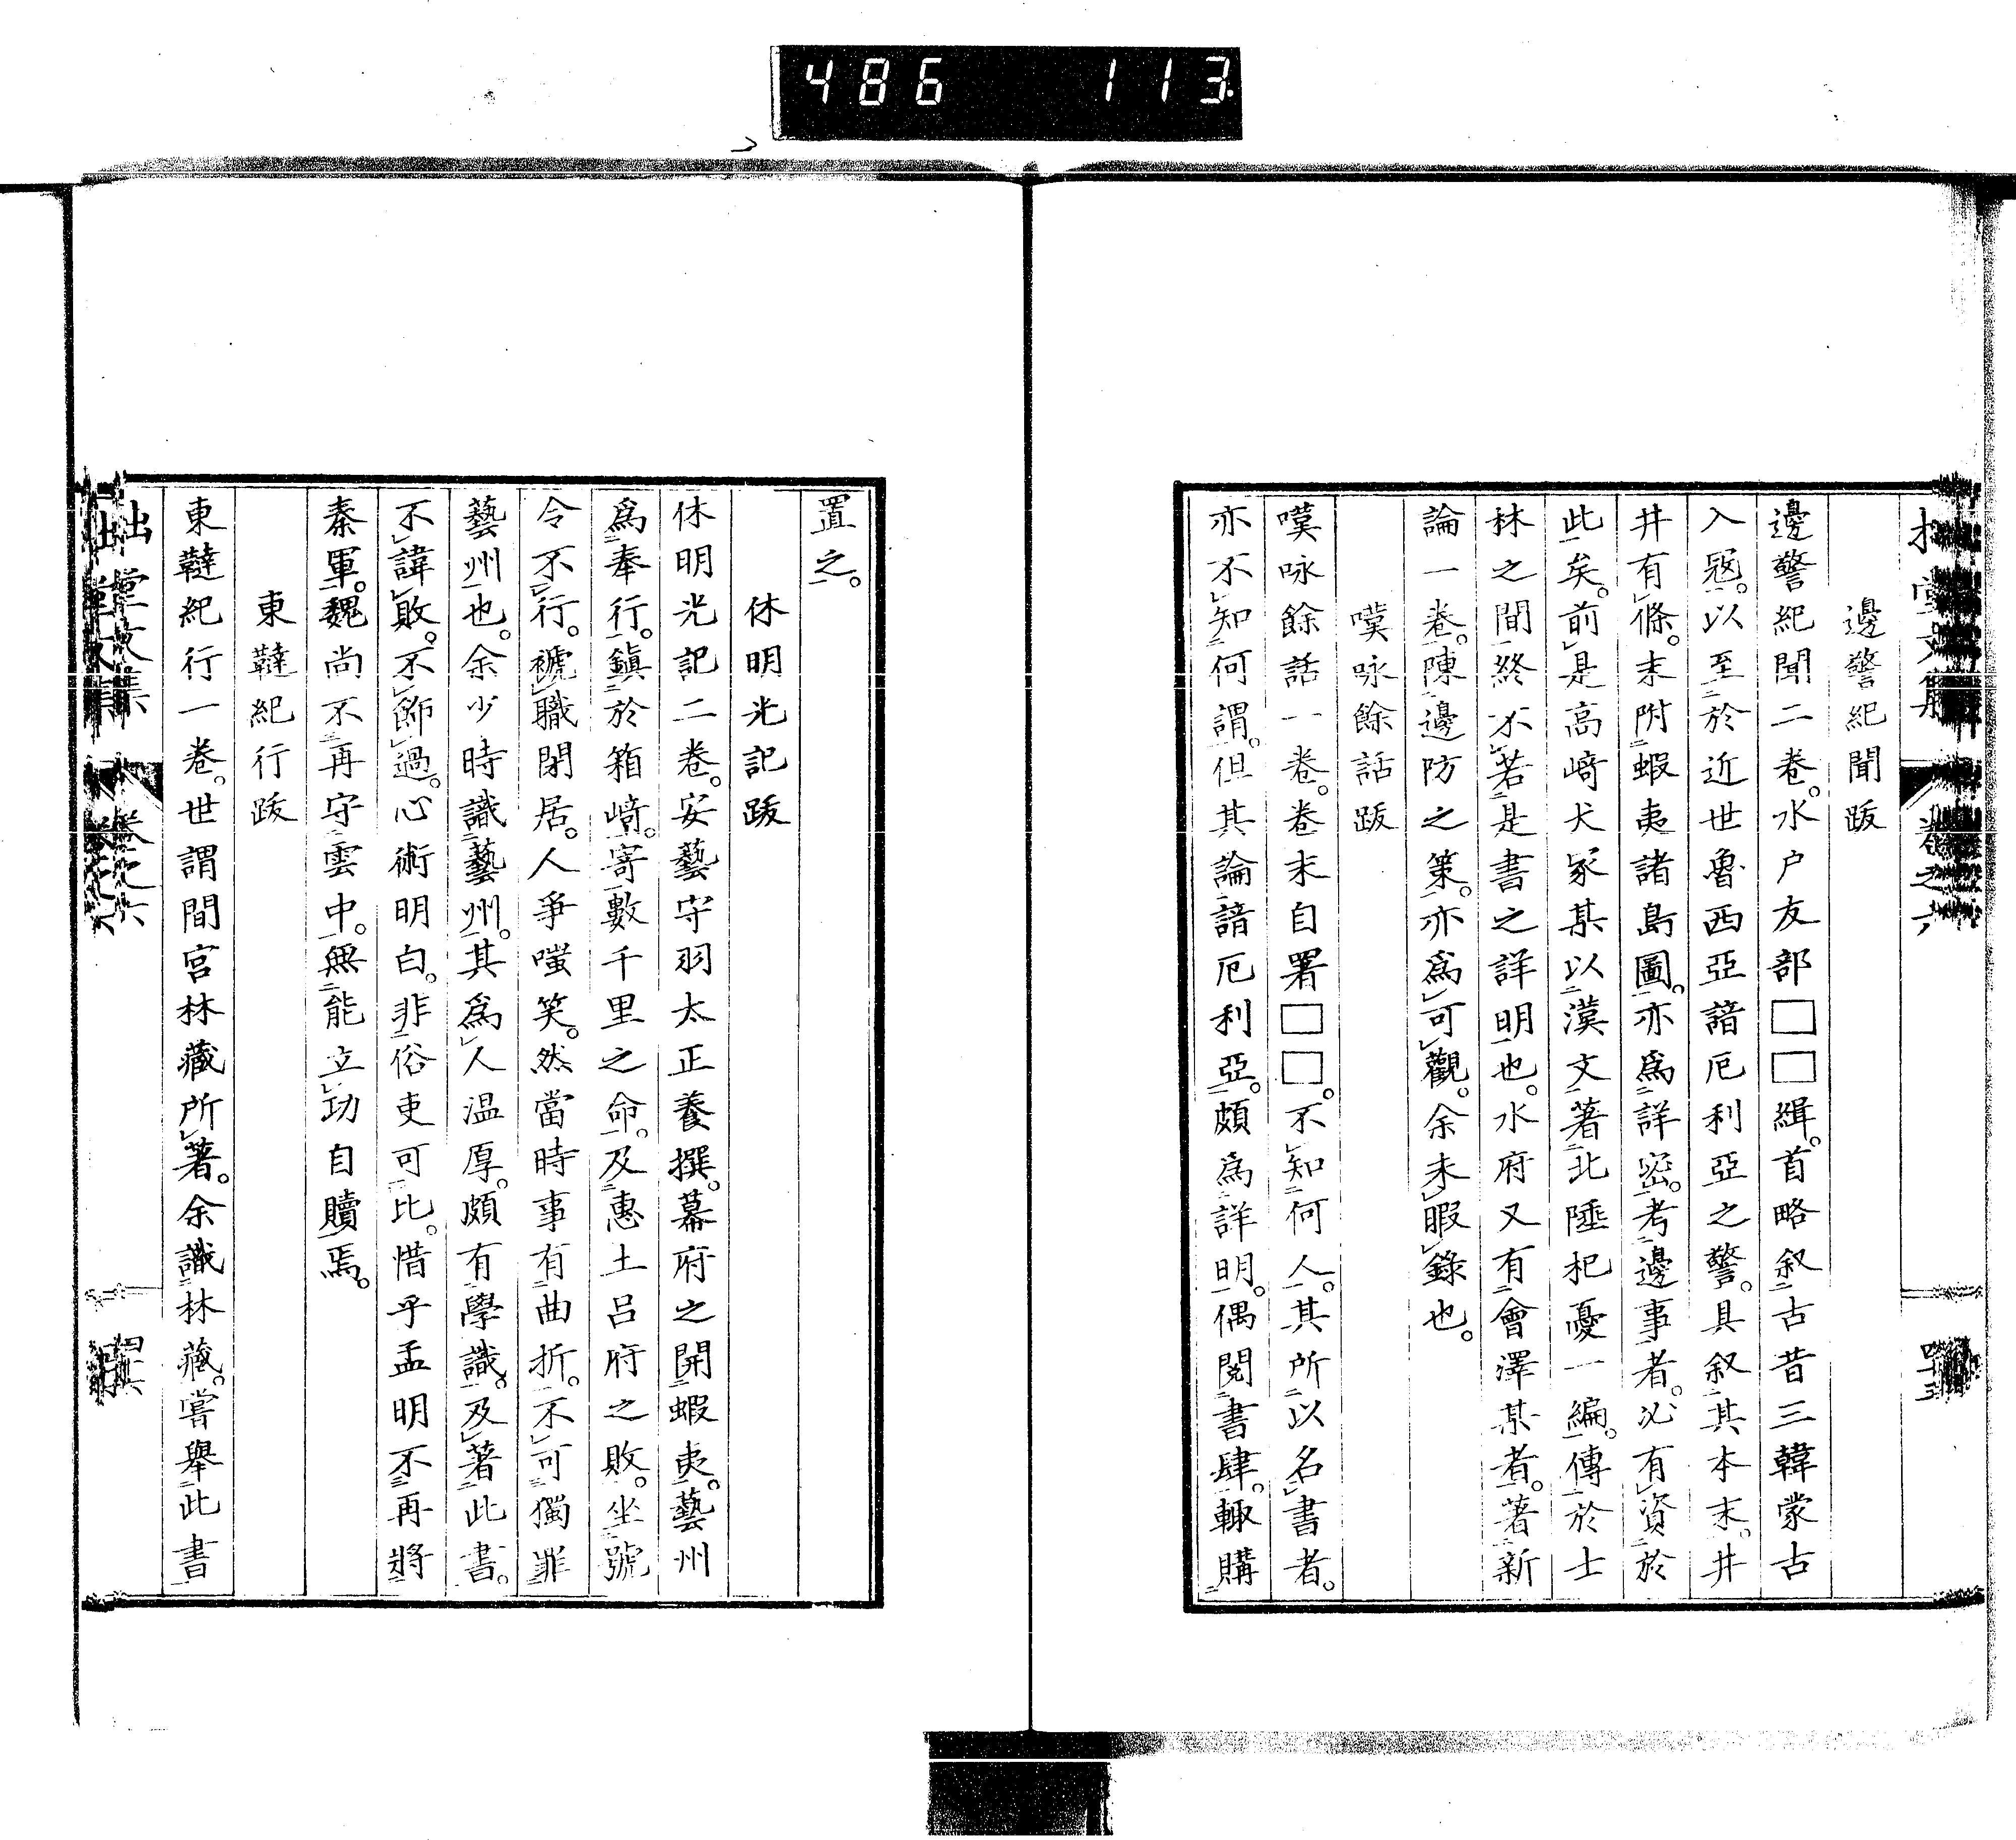 486 113
邊警紀聞跋
邊警紀聞二卷。水户友部□□緝。首略叙古昔三韓蒙古
入寇。以至於近世魯西亞諳厄利亞之警。具叙其本末。井
井有條。末附蝦夷諸島圖。亦爲詳密。考邊事者。必有資於
此矣。前是高﨑犬冢某以漢文著北陲杞憂一編。傳於士
林之間終不若是書之詳明也。水府又有會澤某者。著新
論一卷。陳邊防之策。亦爲可觀。余未暇錄也。
嘆咏餘話跋
嘆咏餘話一卷。卷末自署□□。不知何人。其所以名書者。
亦不知何謂。但其論諳厄利亞。頗爲詳明。偶閱書肆。輙購
置之。
休明光記跋
休明光記二卷。安藝守羽太正養撰。幕府之開蝦夷。藝州
爲奉行。鎭於箱﨑。寄數千里之命。及惠土呂府之敗。坐號
令不行。褫職閉居。人爭嗤笑。然當時事有曲折。不可獨罪
藝州也。余少時識藝州。其爲人温厚。頗有學識。及著此書。
不諱敗。不飾過。心術明白。非俗吏可比。惜乎孟明不再將
秦軍。魏尚不再守雲中。無能立功自贖焉。
東韃紀行跋
東韃紀行一卷。世謂間宮林藏所著。余識林藏。嘗舉此書